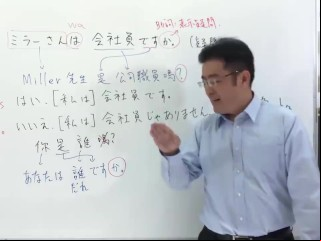 wa 助詞:表示疑問.
ミラーさんは 会社員ですか.
Miller 先生 是 公司職員 嗎?
はい、[私は] 会社員 です.
いいえ、[私は] 会社員 じゃありません
你 是 誰 嗎?
あなたは 誰 ですか.
だれ